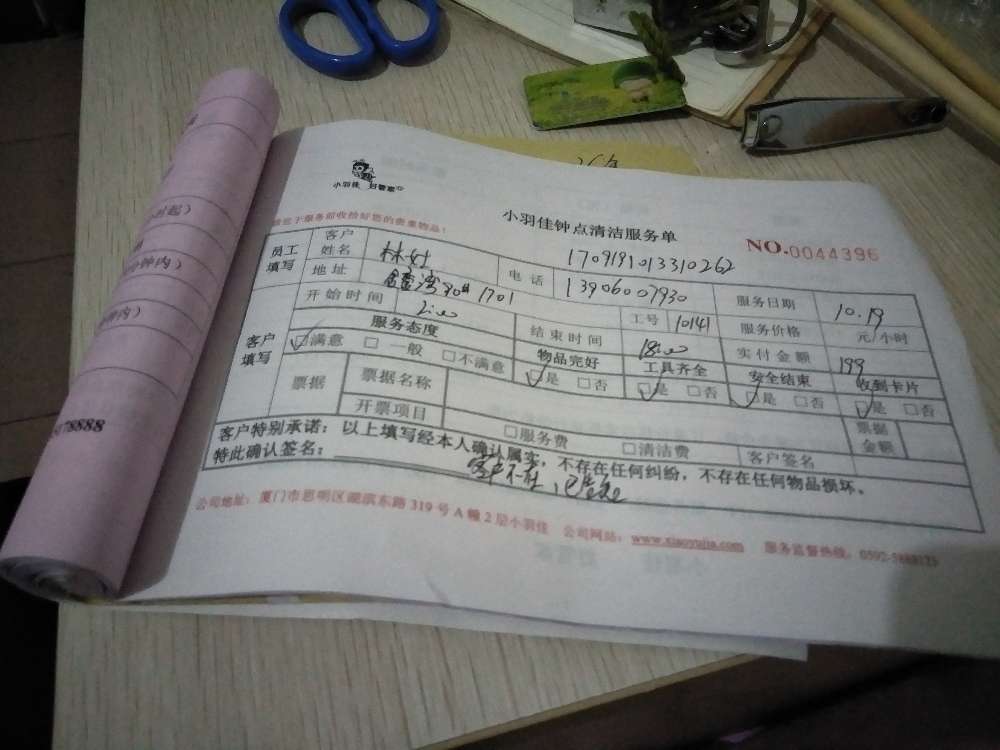 小羽佳 好管家
小羽佳钟点清洁服务单
NO.0044396
服务前收拾好您的贵重物品!
1709191013310262
员工填写
客户姓名
电话
13906007930
服务日期
10.19
地址
1701
工号
10141
服务价格
元/小时
开始时间
结束时间
实付金额
199
客户填写
服务态度
物品完好
工具齐全
安全结束
收到卡片
☑满意 □一般 □不满意
☑是 □否
☑是 □否
☑是 □否
☑是 □否
票据
票据名称
票据金额
开票项目
□服务费 □清洁费
客户签名
客户特别承诺:以上填写经本人确认属实,不存在任何纠纷,不存在任何物品损坏。
特此确认签名:
客户不在,已告知
公司地址:厦门市思明区湖滨东路319号A幢2层小羽佳 公司网站:www.xiaoyujia.com 服务监督热线:
时起)
分钟内)
内)
78888